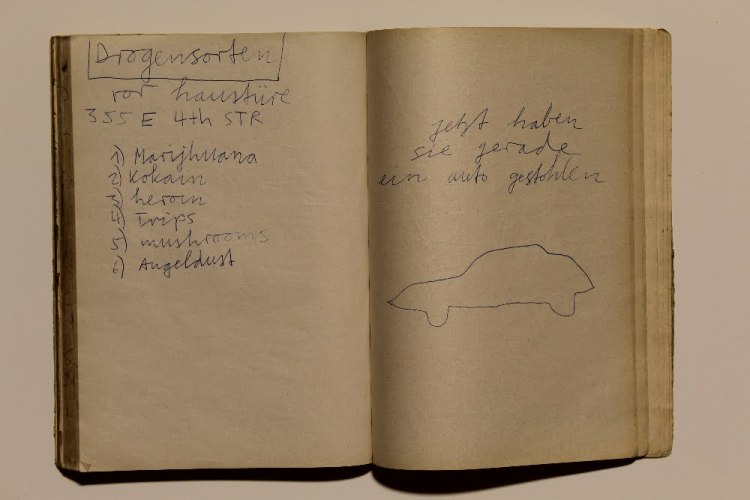 Drogensorten
vor haustüre
355 E 4th STR
1) Marijhuana
2) Kokain
3) heroin
4) Trips
5) mushrooms
6) Angeldust
jetzt haben
sie gerade
ein auto gestohlen